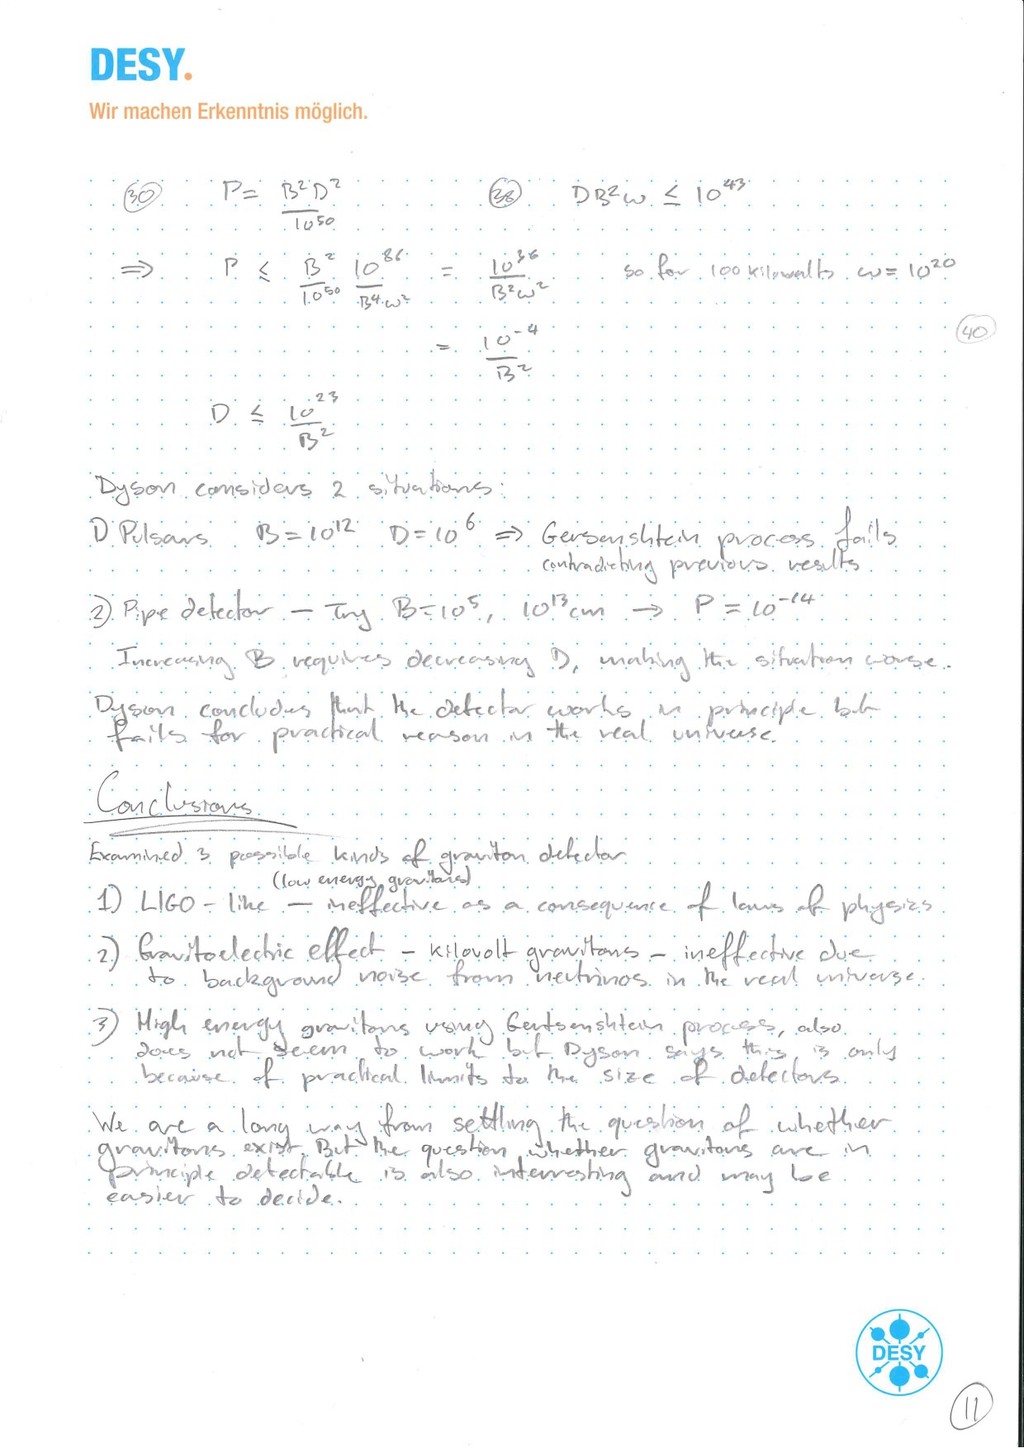 DESY.
Wir machen Erkenntnis möglich.
(30) P = B²D² / 10⁵⁰ (38) DB²ω ≤ 10⁴³
⇒ P ≤ B² / 10⁵⁰ 10⁸⁶ / B⁴ω² = 10³⁶ / B²ω² so for 100 kilowatts ω = 10²⁰
= 10⁻⁴ / B² (40)
D ≤ 10²³ / B²
Dyson considers 2 situations:
1) Pulsars B = 10¹² D = 10⁶ ⇒ Gersenshtein process fails
contradicting previous results
2) Pipe detector – Try B = 10⁵, 10¹³cm → P = 10⁻¹⁴
Increasing B requires decreasing D, making the situation worse.
Dyson concludes that the detector works in principle but
fails for practical reason in the real universe.
Conclusions
Examined 3 possible kinds of graviton detector
(low energy gravitons)
1) LIGO – like – ineffective as a consequence of laws of physics
2) Gravitoelectric effect – kilovolt gravitons – ineffective due
to background noise from neutrinos in the real universe.
3) High energy gravitons using Gertsenshtein process, also
does not seem to work but Dyson says this is only
because of practical limits to the size of detectors.
We are a long way from settling the question of whether
gravitons exist. But the question whether gravitons are in
principle detectable is also interesting and may be
easier to decide.
DESY
11